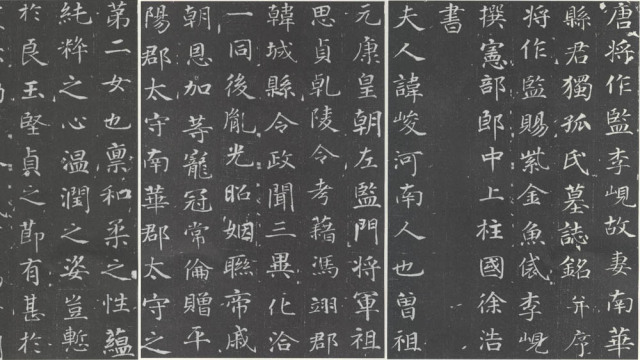 唐將作監李峴故妻南華
縣君獨孤氏墓誌銘并序
將作監賜紫金魚袋李峴
撰憲部郎中上柱國徐浩
書
夫人諱峻河南人也曾祖
元康皇朝左監門將軍祖
思貞乾陵令考藉馮翊郡
韓城縣令政聞三異化洽
一同後胤光昭姻聯帝戚
朝恩加等寵冠常倫贈平
陽郡太守南華郡太守之
第二女也稟和柔之性蘊
純粹之心溫潤之姿豈慙
於良玉堅貞之節有甚於